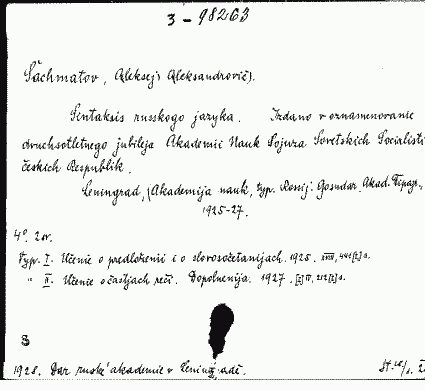 3 - 98263
Šachmatov, (Aleksej Aleksandrovič).
Sintaksis russkogo jazyka. Izdano v oznamenovanie
dvuchsotletnego jubileja Akademii Nauk Sojuza Sovetskich Socialisti
českich Respublik.
Leningrad, (Akademija nauk, typ. Ross. Gosudar. Akad. Tipogr.,
1925-27.
4°. 2 sv.
Vyp. I. Učenie o predloženii i o slovosočetanijach. 1925. XVIII, 441 [2] s.
" II. Učenie o častjach reči. Dopolnenija. 1927. [2] IV, 212 [2] s.
S
1928. Dar ruské akademie v Leningradě.